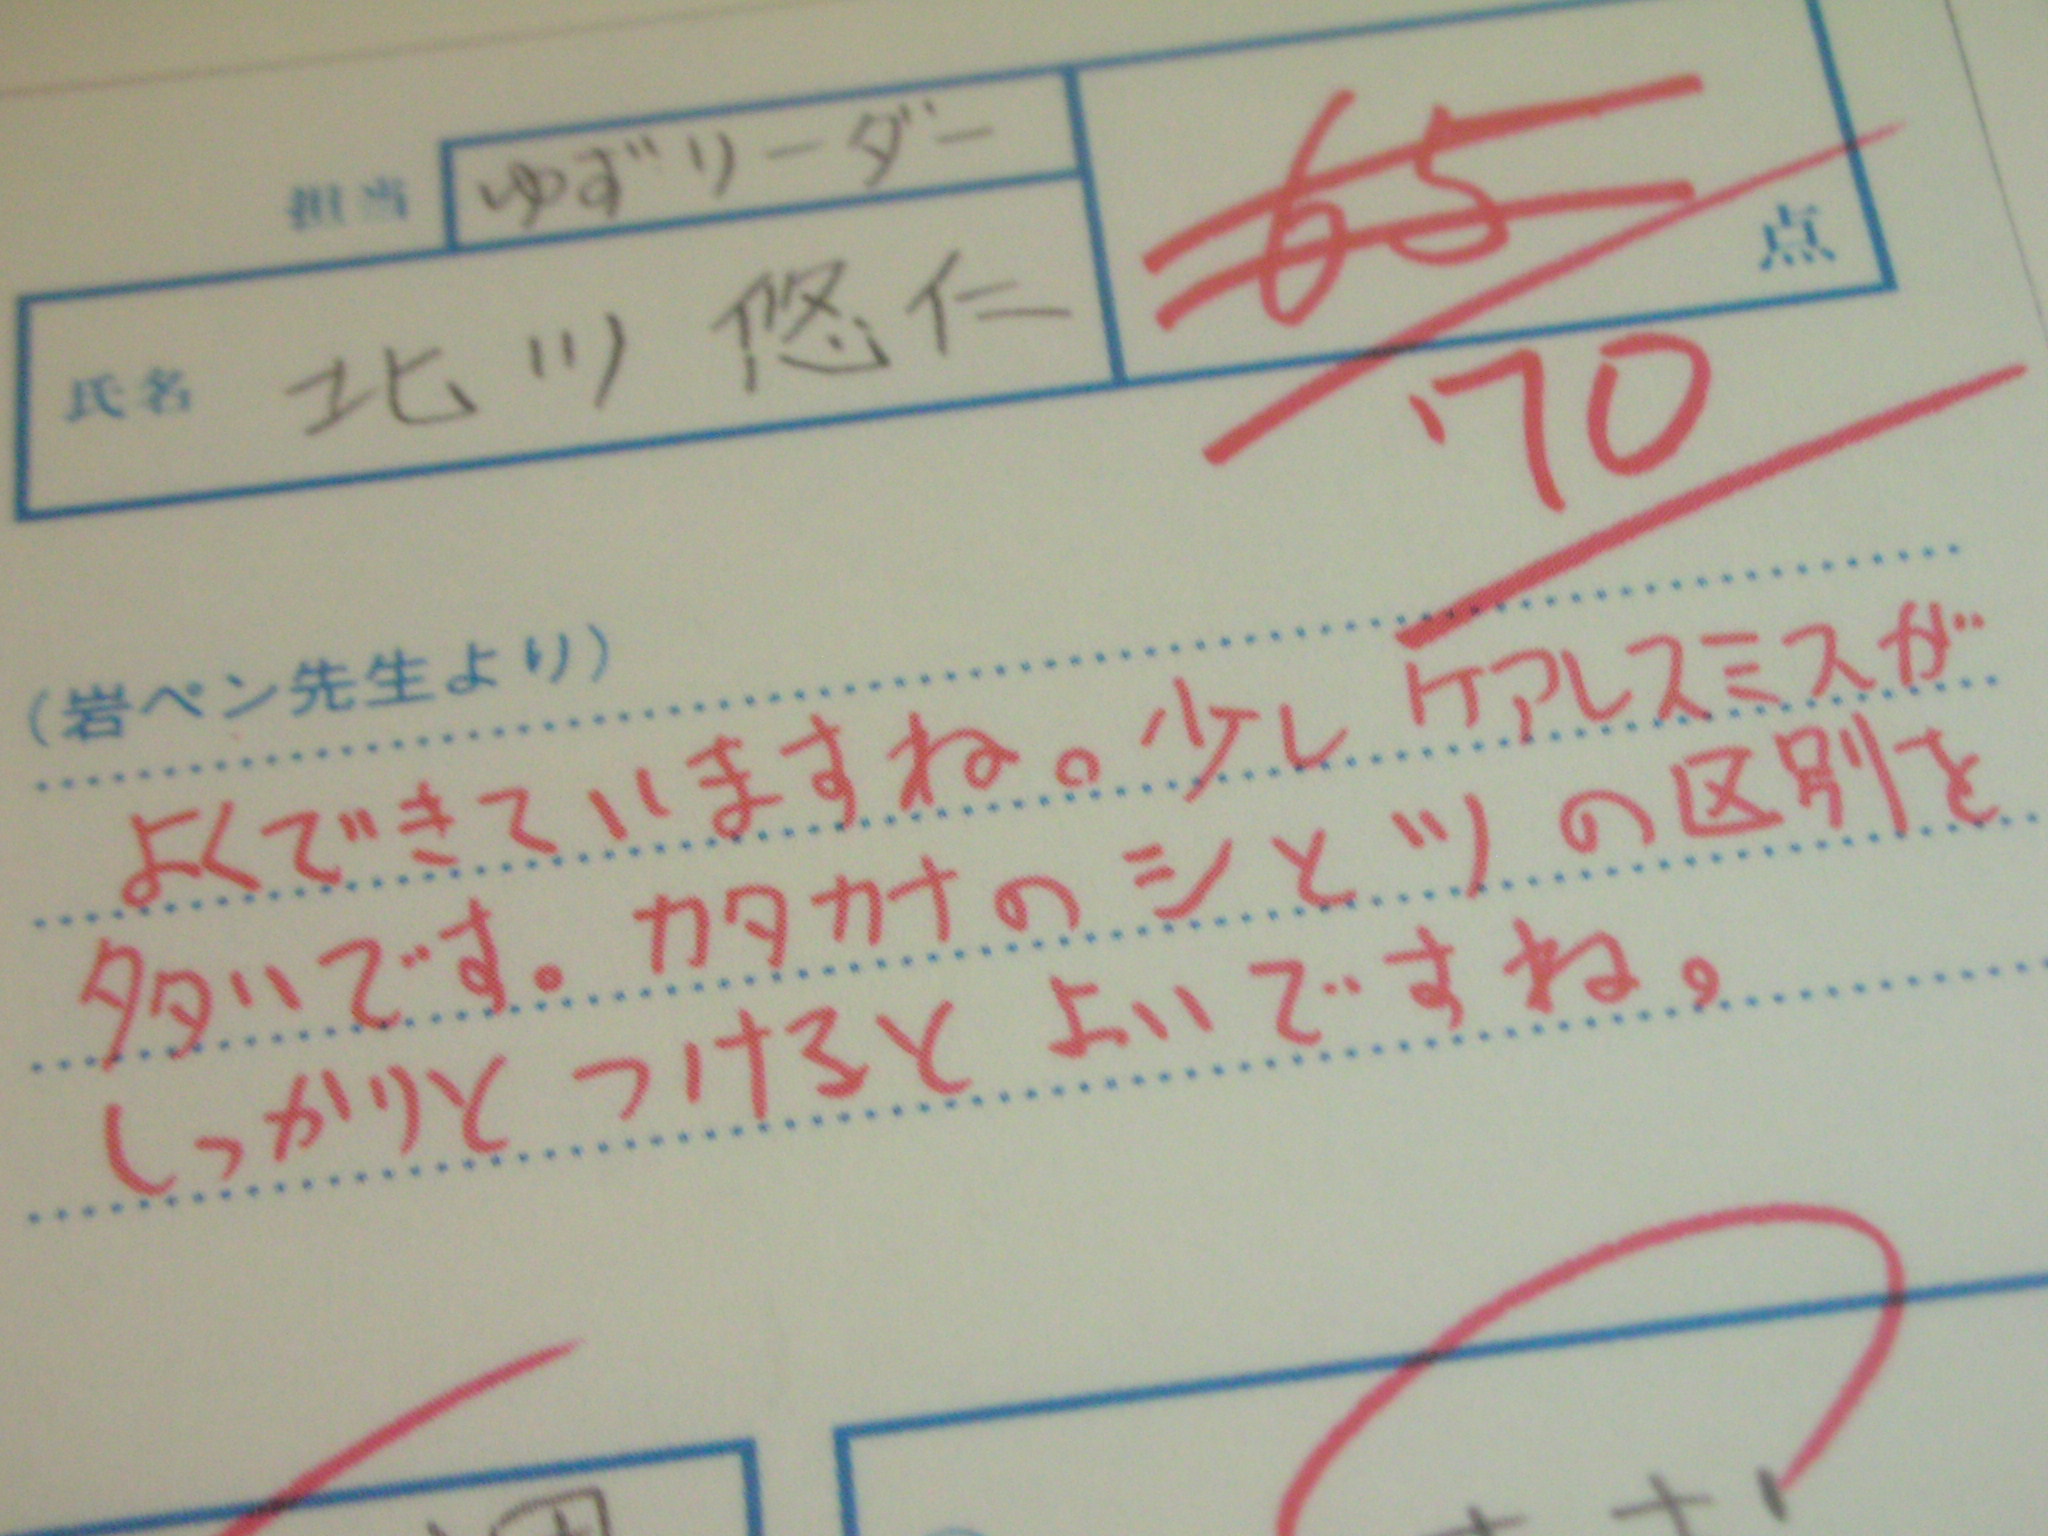 担当 ゆずリーダー
氏名 北川 悠仁
65 点
70
(岩ペン先生より)
よくできていますね。少し ケアレスミスが
多いです。カタカナの シ と ツ の区別を
しっかりと つけると よいですね。